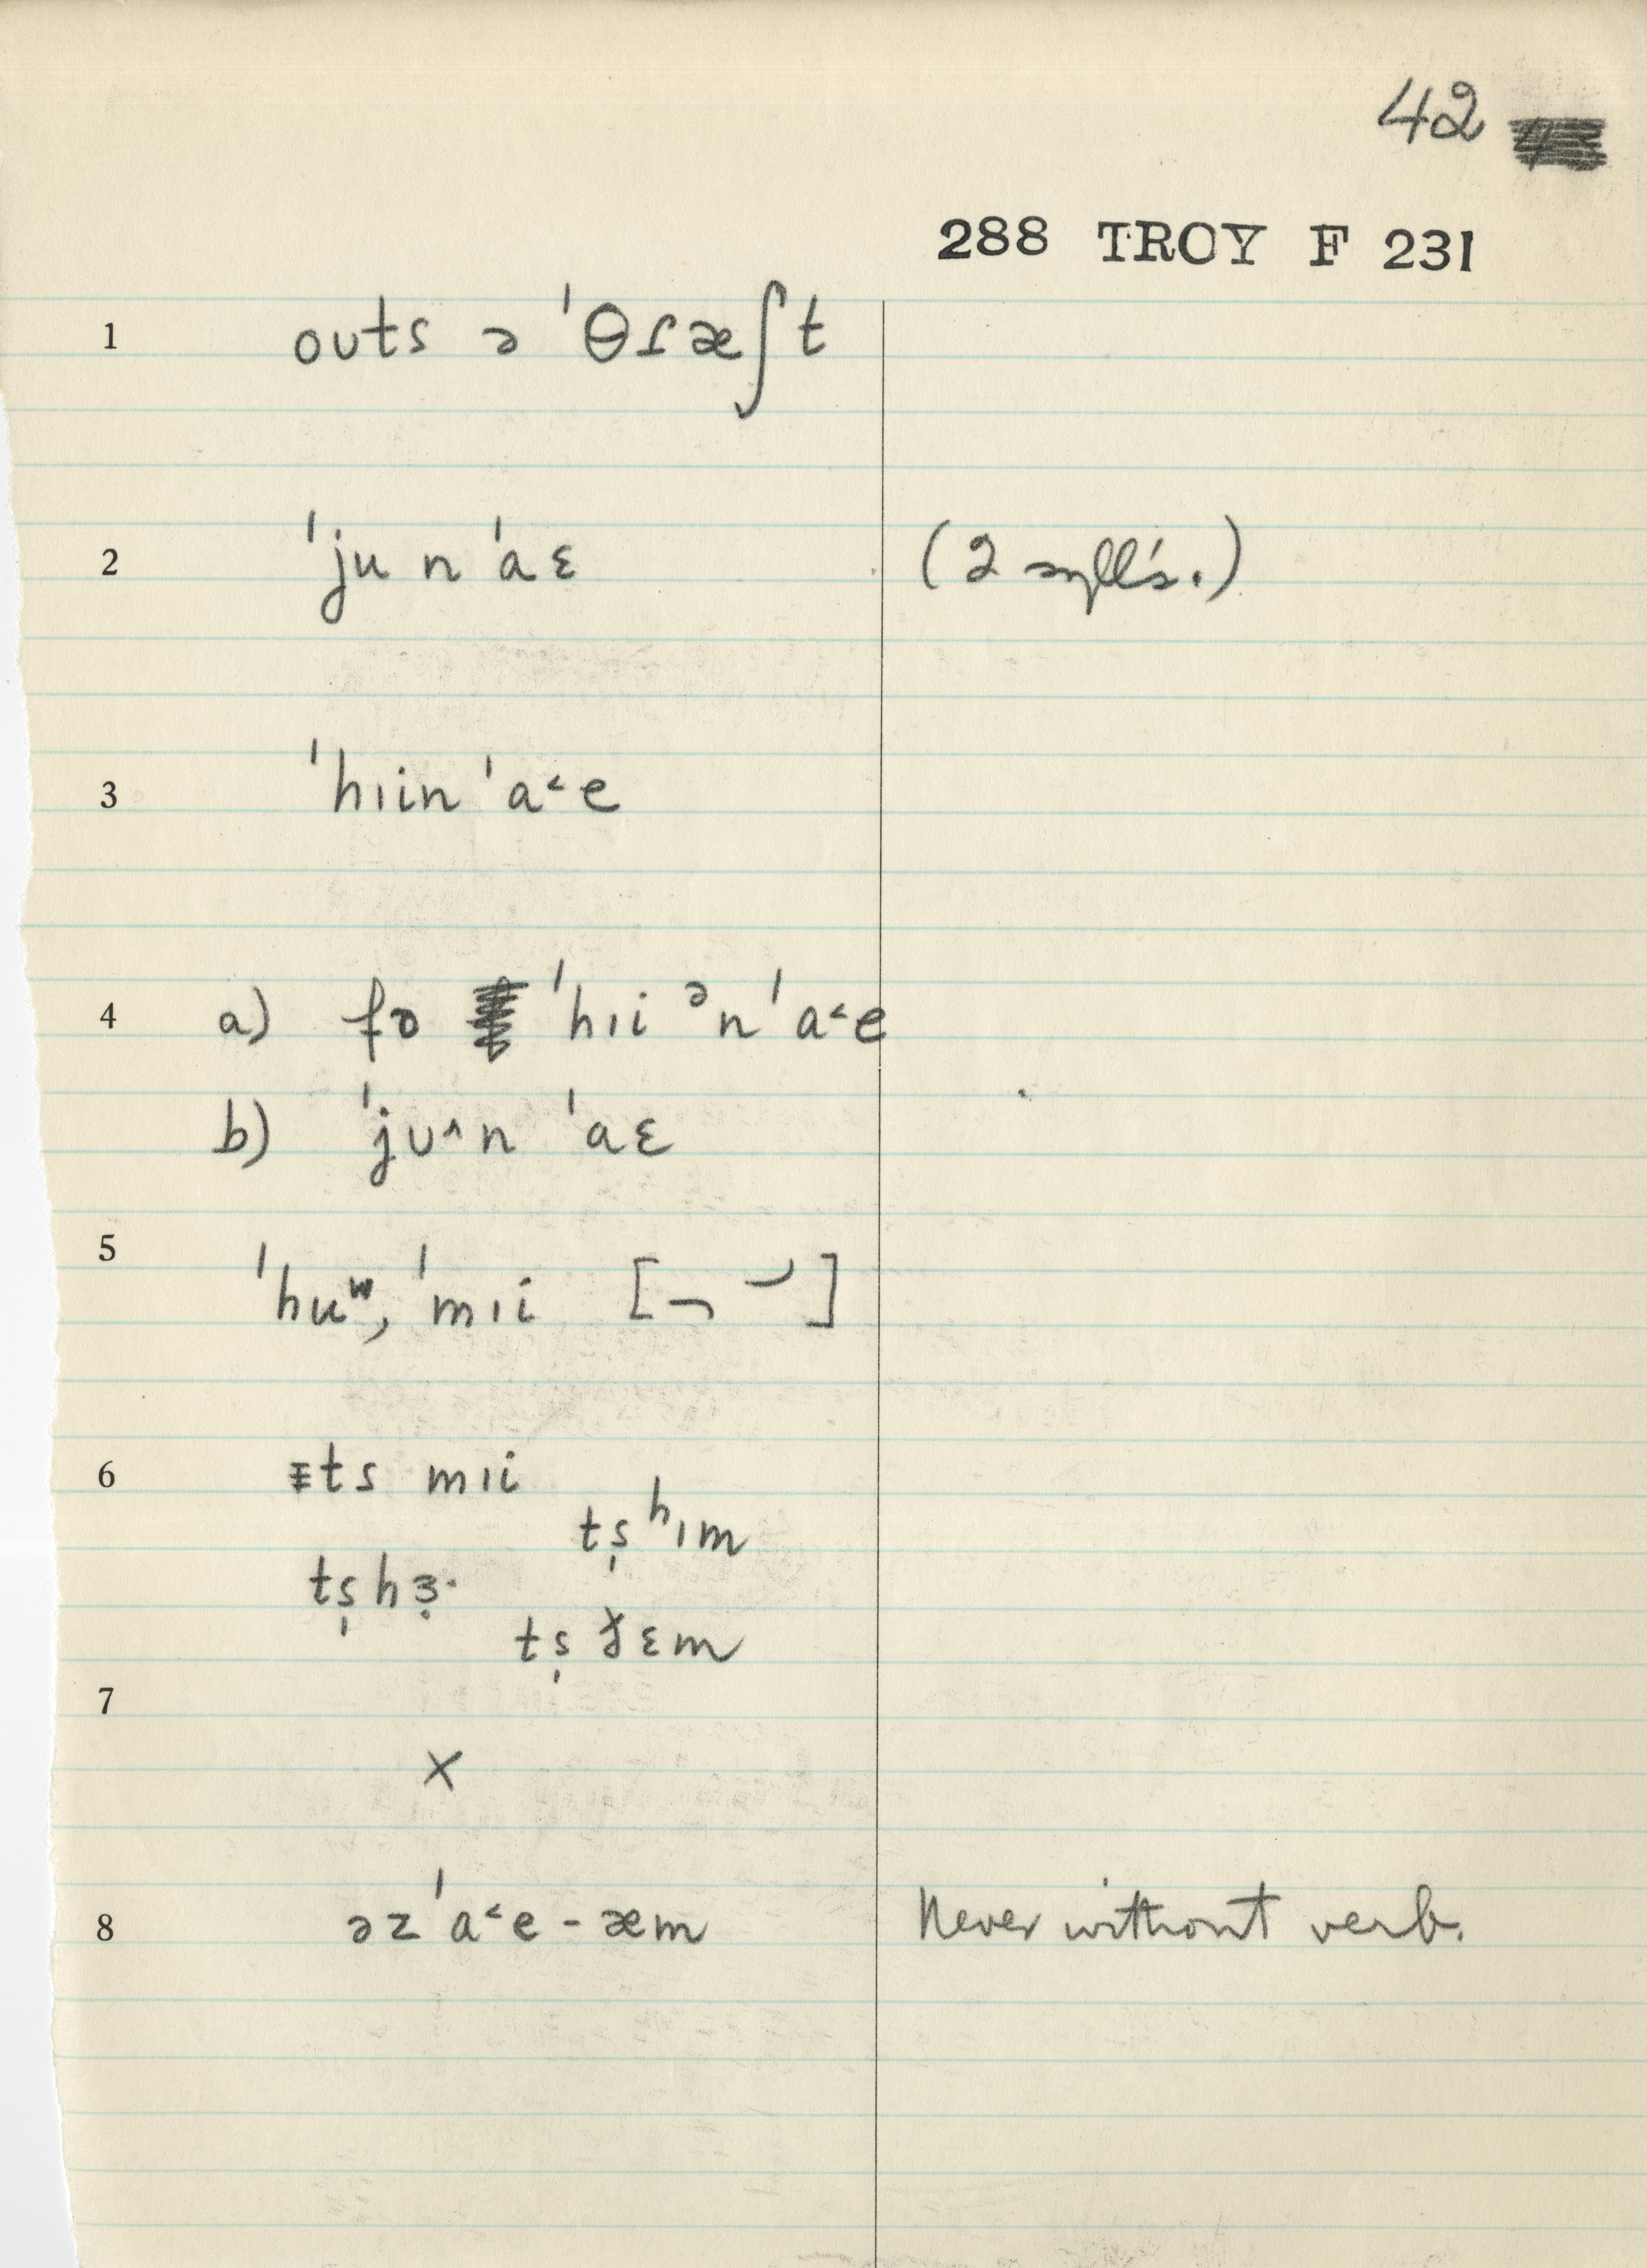 42
288 TROY F 231
1 outs ə ˈθɾæʃt
2 ˈju n ˈaɛ (2 syll's.)
3 ˈhɪin ˈa˂e
4 a) fɔ ˈhɪi ᵊn ˈa˂e
b) ˈjʊ˄n ˈaɛ
5 ˈhuʷ, ˈmɪi [¬ ⏑]
6 ɪts mɪi
ts̩ ʰɪm
ts̩hɜ̣·
ts̩ ɛm
7
×
8 əz ˈa˂e - æm Never without verb.